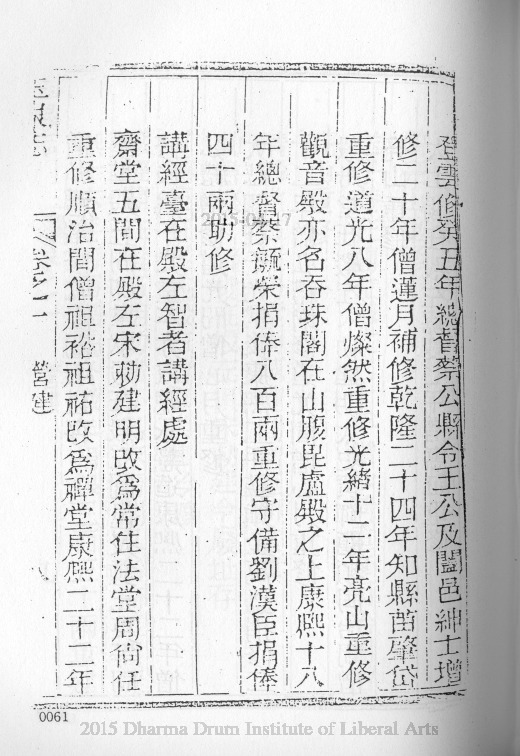 登雲修癸五年總督蔡公縣令王公及闔邑紳士增
修二十年僧蓮月補修乾隆二十四年知縣苗肇岱
重修道光八年僧燦然重修光緒十二年亮山重修
觀音殿亦名吞珠閣在山腹毘盧殿之上康熙十八
年總督蔡毓榮捐俸八百兩重修守備劉漢臣捐俸
四十兩助修
講經臺在殿左智者講經處
齋堂五間在殿左宋勅建明改為常住法堂周尙任
重修順治間僧祖裕祖祐改為禪堂康熙二十二年
玉泉志 卷之一 營建
0061
2015 Dharma Drum Institute of Liberal Arts